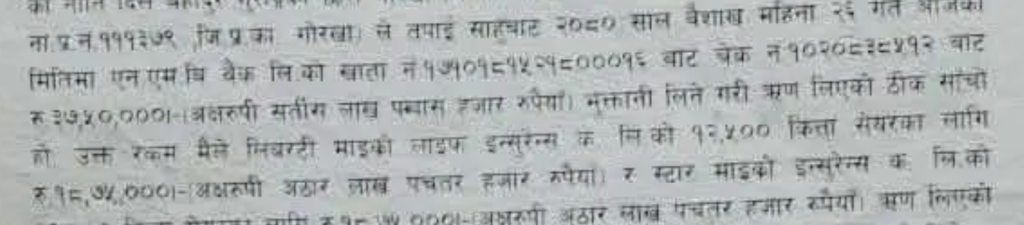 को नाति दिल बहादुर
ना.प्र.नं.१११३७९ जि.प्र.का. गोरखा) ले तपाई साहुबाट २०८० साल बैशाख महिना २६ गते आजका
मितिमा एन.एम.बि बैंक लि.को खाता नं १७१०१८१५२१८०००१६ बाट चेक नं १०२०८३८५१२ बाट
रु.३७,५०,०००।-(अक्षरुपी सतीस लाख पचास हजार रुपैयाँ) भुक्तानी लिने गरी ऋण लिएको ठीक साँचो
हो उक्त रकम मैले लिबरटी माइको लाइफ इन्सुरेन्स क. लि.को १२,५०० कित्ता सेयरका लागि
रु.१८,७५,०००।-(अक्षरुपी अठार लाख पचतर हजार रुपैयाँ) र स्टार माइको इन्सुरेन्स क. लि.को
लागि रु.१८,७५,०००।-(अक्षरुपी अठार लाख पचतर हजार रुपैयाँ) ऋण लिएको